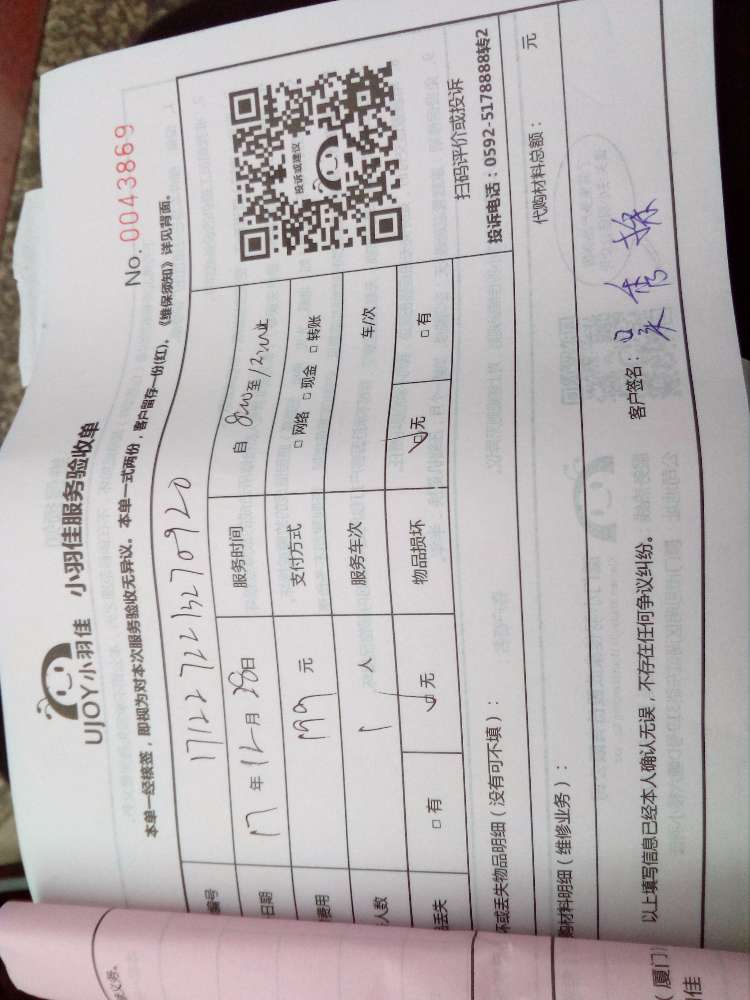 No. 0043869
UJOY小羽佳 小羽佳服务验收单
本单一经核签，即视为对本次服务验收无异议。本单一式两份，客户留存一份(红)，《维保须知》详见背面。
编号 1712272213270920
日期 17 年 12 月 28 日 服务时间 自 8:00 至 12:00 止
费用 199 元 支付方式 □ 网络 □ 现金 □ 转账
人数 1 人 服务车次 车/次
丢失 □ 有 ☑ 无 物品损坏 ☑ 无 □ 有
投诉或建议
扫码评价或投诉
投诉电话：0592-5178888转2
坏或丢失物品明细（没有可不填）：
购材料明细（维修业务）： 代购材料总额： 元
以上填写信息已经本人确认无误，不存在任何争议纠纷。 客户签名：
（厦门）
佳